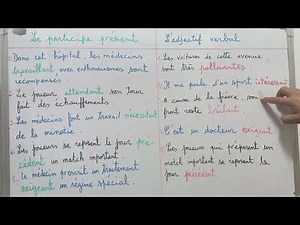 Le participe présent
Dans cet hôpital, les médecins
travaillant avec enthousiasme sont
récompensés
Le joueur attendant son tour
fait des échauffements
Les médecins font un travail nécessitant
de la minutie.
Les joueurs se reposent le jour pré-
cédent un match important.
Le médecin prescrit un traitement
exigeant un régime spécial.
L'adjectif verbal
Les voitures de cette avenue
sont très polluantes
Il me parle d'un sport intéressant
A cause de la fièvre, son
front reste brûlant.
C'est un docteur exigeant.
Les joueurs qui préparent un
match important se reposent le
jour précédent